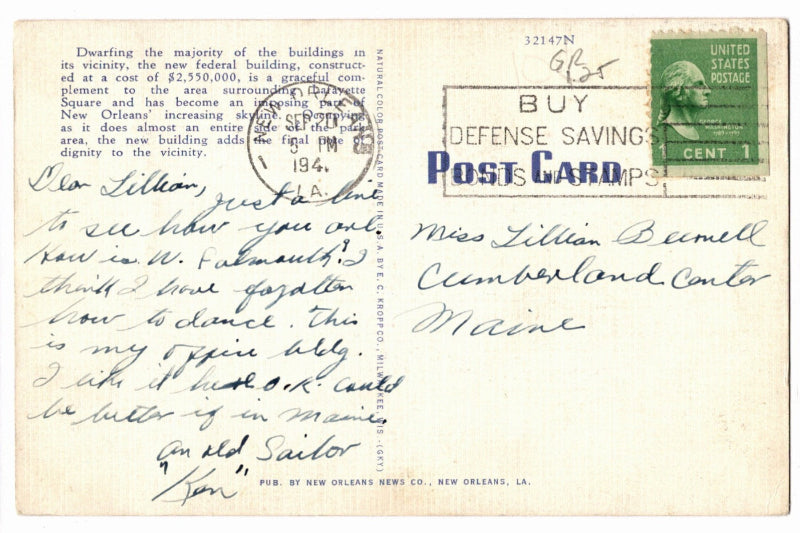 Dwarfing the majority of the buildings in
its vicinity, the new federal building, construct-
ed at a cost of $2,550,000, is a graceful com-
plement to the area surrounding Lafayette
Square and has become an imposing part of
New Orleans' increasing skyline. Occupying
as it does almost an entire side of the park
area, the new building adds the final note of
dignity to the vicinity.
Dear Lillian,
Just a line
to see how you are.
How is W. Falmouth? I
think I have forgotten
how to dance. This
is my office bldg.
I like it here O.K. Could
be better if in Maine.
An old Sailor
"Ken"
NATURAL COLOR POST CARD MADE IN U.S.A. BY E. C. KROPP CO., MILWAUKEE, WIS.-(GKY)
PUB. BY NEW ORLEANS NEWS CO., NEW ORLEANS, LA.
NEW ORLEANS
SEP
PM
194
LA.
32147N
BUY
DEFENSE SAVINGS
BONDS AND STAMPS
POST CARD
UNITED
STATES
POSTAGE
GEORGE
WASHINGTON
1 CENT 1
Miss Lillian
Cumberland Center
Maine